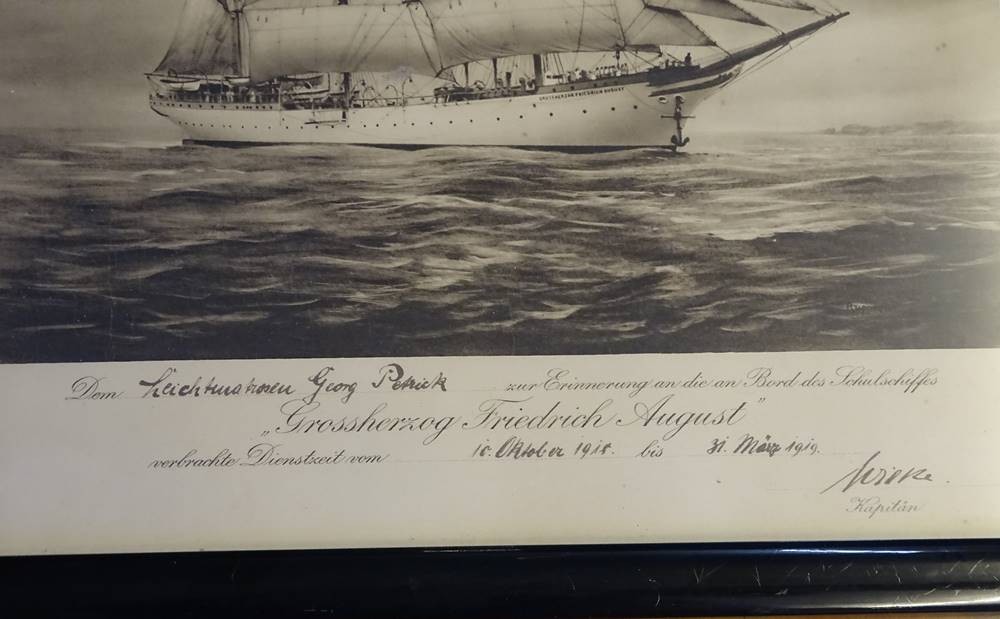 GROSSHERZOG FRIEDRICH AUGUST
Dem Leichtmatrosen Georg Petrick zur Erinnerung an die an Bord des Schulschiffes
„Grossherzog Friedrich August"
verbrachte Dienstzeit vom Oktober bis 31. März 1919.
Kapitän